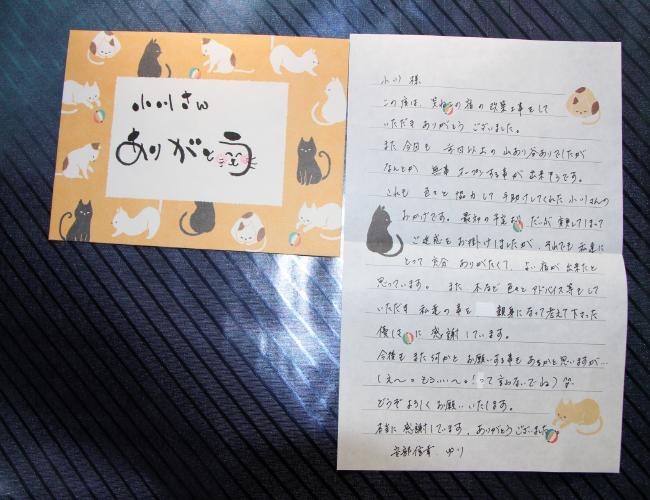 小川さん
ありがとう
小川 様
この度は、笑ねこの宿の改築工事をして
いただき ありがとう ございました。
また 今回も 予想以上の 山あり谷ありでしたが
なんとか 無事 オープンする事が 出来そうです。
これも 色々と 協力して 手助けしてくれた 小川さんの
おかげです。 最初の予定 だいぶ 変更してしまって
ご迷惑を お掛けしましたが、それでも 私達に
とって 充分 ありがたくて、よい宿が 出来たと
思っています。 また 木など 色々と アドバイス等もして
いただき 私達の事を 親身になって考えて下さった
優しさに 感謝しています。
今後も また何かと お願いする事も あるかと思いますが…
(え〜っ もういい〜っ! って 言わないでね)
どうぞ よろしく お願いいたします。
本当に 感謝しています。ありがとうございました
安部信幸 ゆり